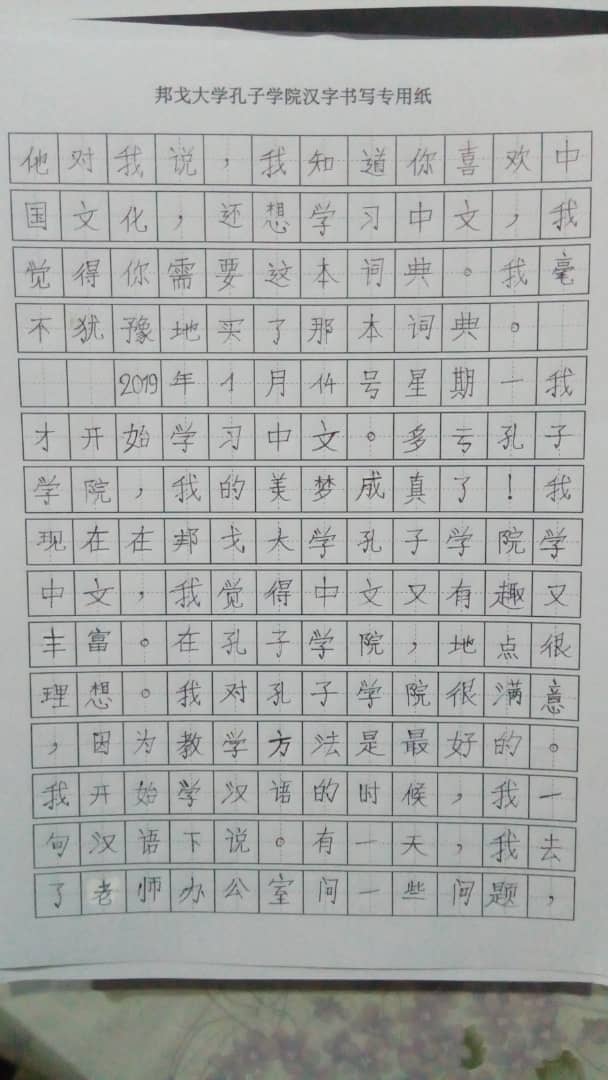 邦戈大学孔子学院汉字书写专用纸
他对我说，我知道你喜欢中
国文化，还想学习中文，我
觉得你需要这本词典。我毫
不犹豫地买了那本词典。
2019年1月14号星期一我
才开始学习中文。多亏孔子
学院，我的美梦成真了！我
现在在邦戈大学孔子学院学
中文，我觉得中文又有趣又
丰富。在孔子学院，地点很
理想。我对孔子学院很满意
，因为教学方法是最好的。
我开始学汉语的时候，我一
句汉语下说。有一天，我去
了老师办公室问一些问题，